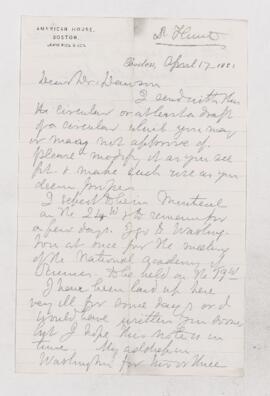 AMERICAN HOUSE,
BOSTON.
LEWIS RICE & SON.
Dr Hunt
Boston April 17. 1881
Dear Dr. Dawson
I send with this
the circular or at least a draft
of a circular which you may
or may not approve of.
Please modify it as you see
fit & make such use as you
deem proper.
I expect to be in Montreal
on the 24th & to remain for
a few days. I go to Washing-
ton at once for the meeting
of the National Academy of
Sciences to be held on the 19th
I have been laid up here
very ill for some days or I
would have written you sooner
but I hope this note is in
time. My address in
Washington for two or three